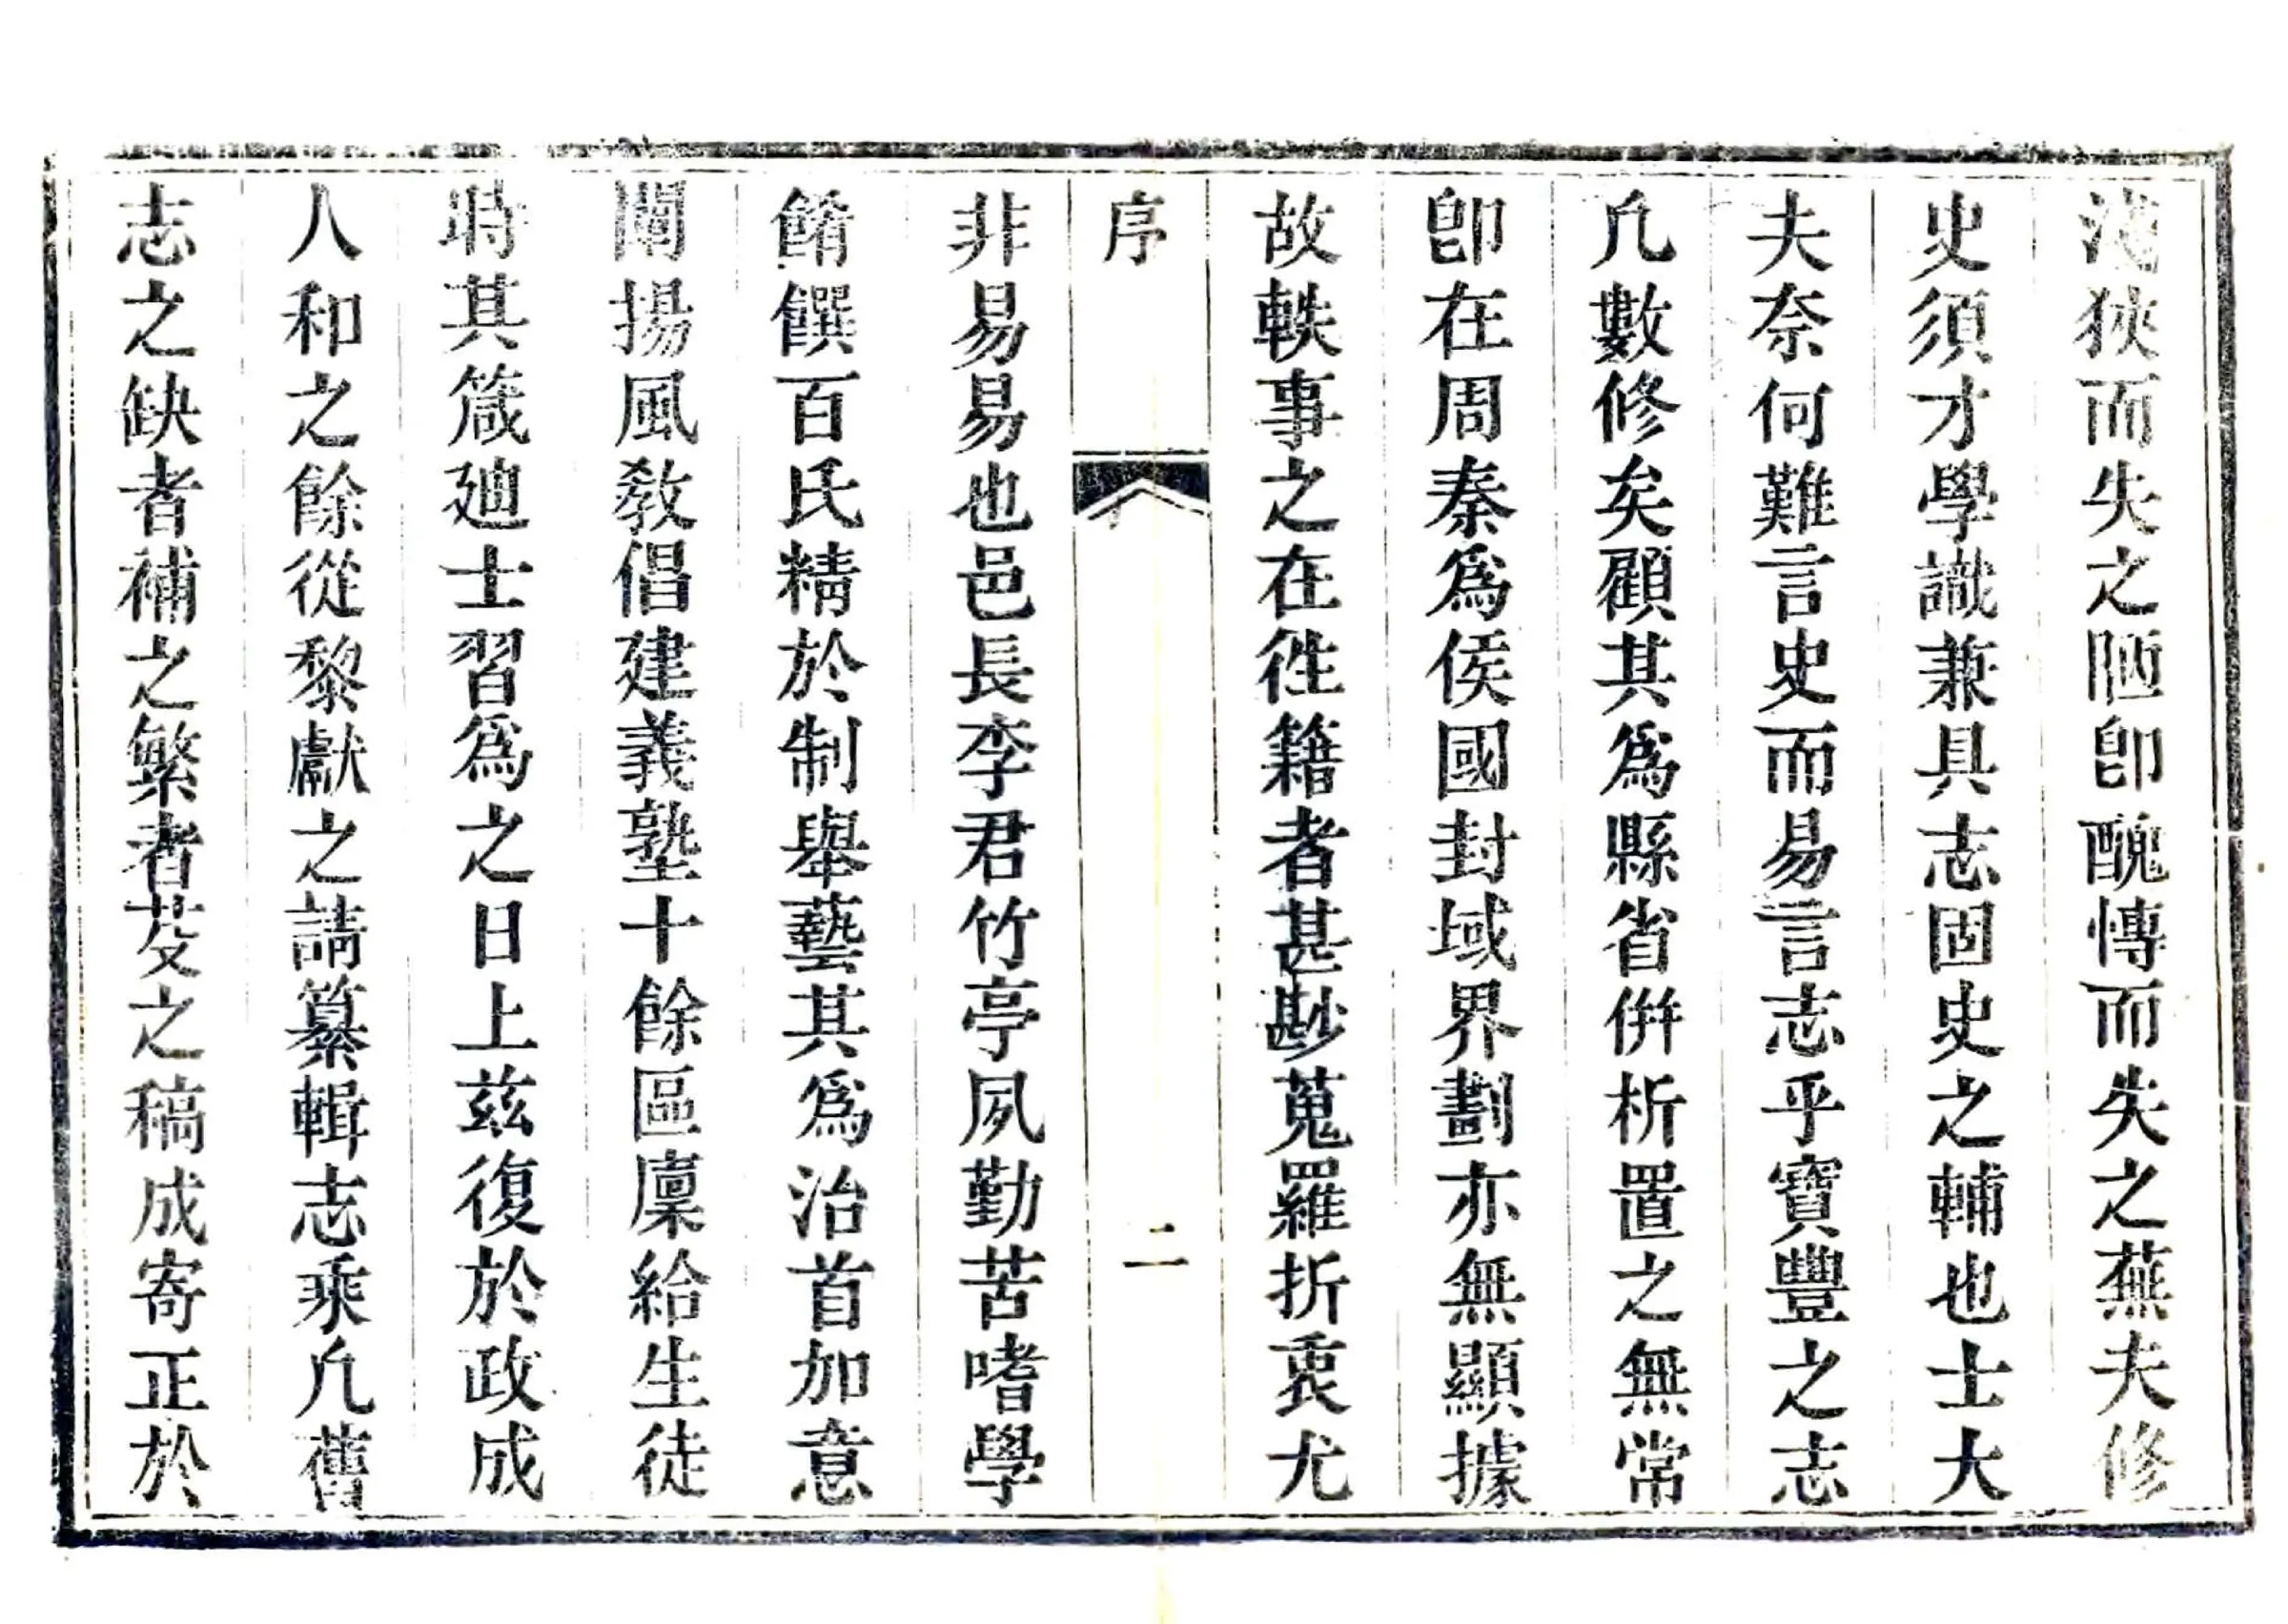 淺狹而失之陋卽醜慱而失之蕪夫修
史須才學識兼具志固史之輔也士大
夫奈何難言史而易言志乎寶豐之志
凢數修矣顧其爲縣省併析置之無常
卽在周秦爲侯國封域界劃亦無顯據
故軼事之在徃籍者甚尠蒐羅折衷尤
序
二
非易易也邑長李君竹亭夙勤苦嗜學
餚饌百氏精於制舉藝其爲治首加意
闡揚風敎倡建義塾十餘區廩給生徒
時其箴廸士習爲之日上兹復於政成
人和之餘從黎獻之請纂輯志乘凢舊
志之缺者補之繁者芟之稿成寄正於